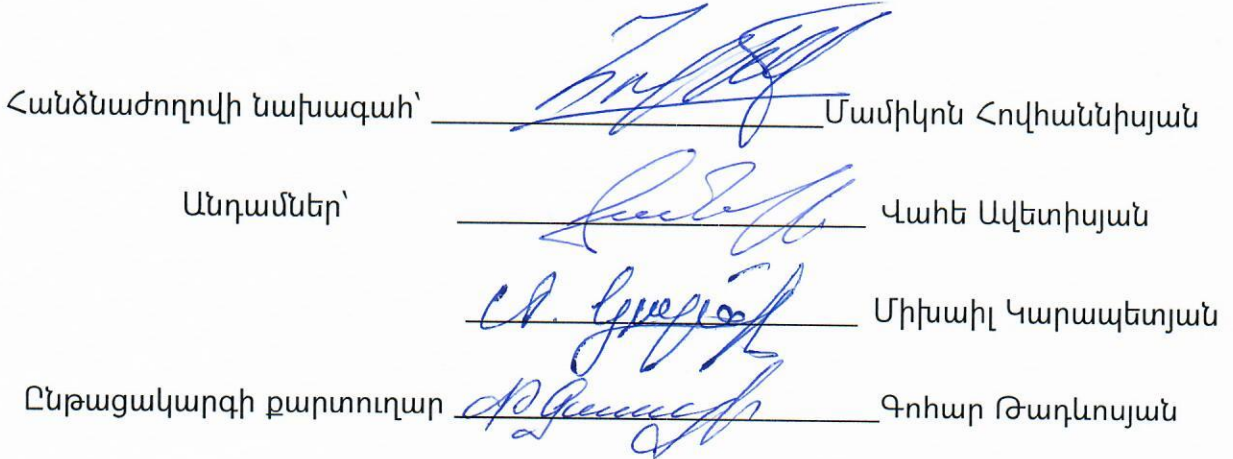 Հանձնաժողովի նախագահ՝ Մամիկոն Հովհաննիսյան
Անդամներ՝ Վահե Ավետիսյան
Միխաիլ Կարապետյան
Ընթացակարգի քարտուղար Գոհար Թադևոսյան